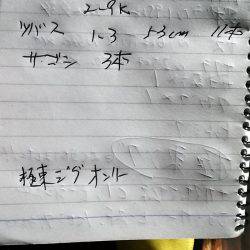 2-9K
ツバス 1-3 53cm 11本
サゴシ 3本
極東ジグオンリー